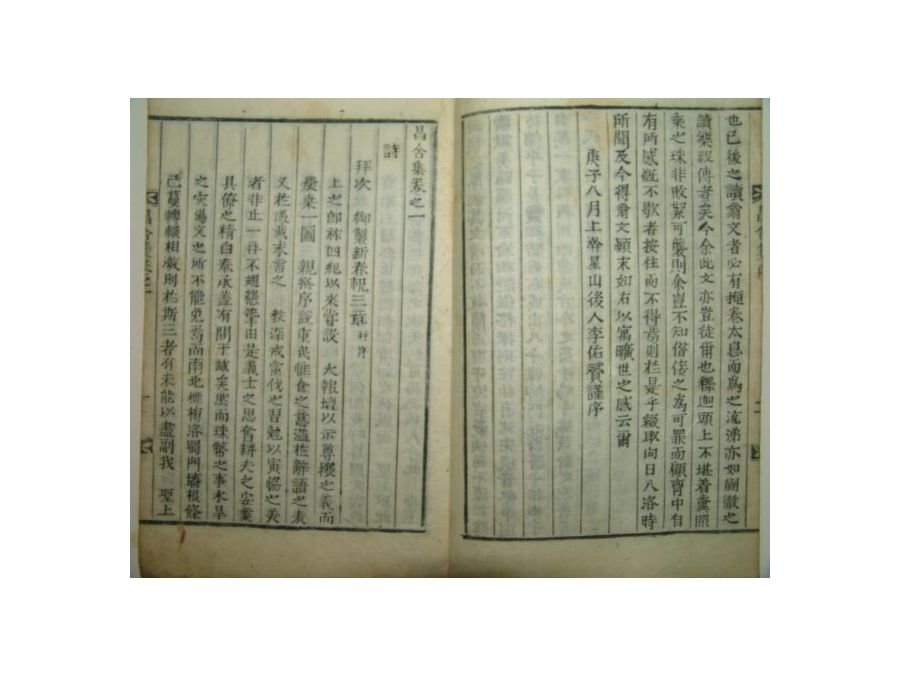 也已後之讀翁文者必有掩卷太息而爲之流涕亦如蒯徹之
讀樂毅傳者矣今余此文亦豈徒爾也釋迦頭上不堪着糞照
乘之珠非敗絮可襲則余豈不知俗倿之爲可罪而顧甯中自
有所感慨不歇者按住而不得焉則於是乎綴取向日入洛時
所聞及今得翁文顚末如右以寓曠世之感云爾
庚子八月上澣星山後人李佑贇謹序
昌舍集卷之一
詩
拜次 御製新春帆三章 幷序
上之卽祚四紀以來嘗設 大報壇以示尊攘之義而
慶来一圖 親撰序說東民惟食之意溢於辭語之表
又於通載求言之 敎深戒黨伐之習勉以寅恊之美
者非止一再不翅懇摯由是義士之思奮耕夫之安業
具僚之精白奉承盖有關于誠矣然而珠幣之事水旱
之灾湯文之所不能免焉高南北標榜洛蜀門墻根條
己蔓轉輾相激則於斯三者有未能以盡副我 聖上